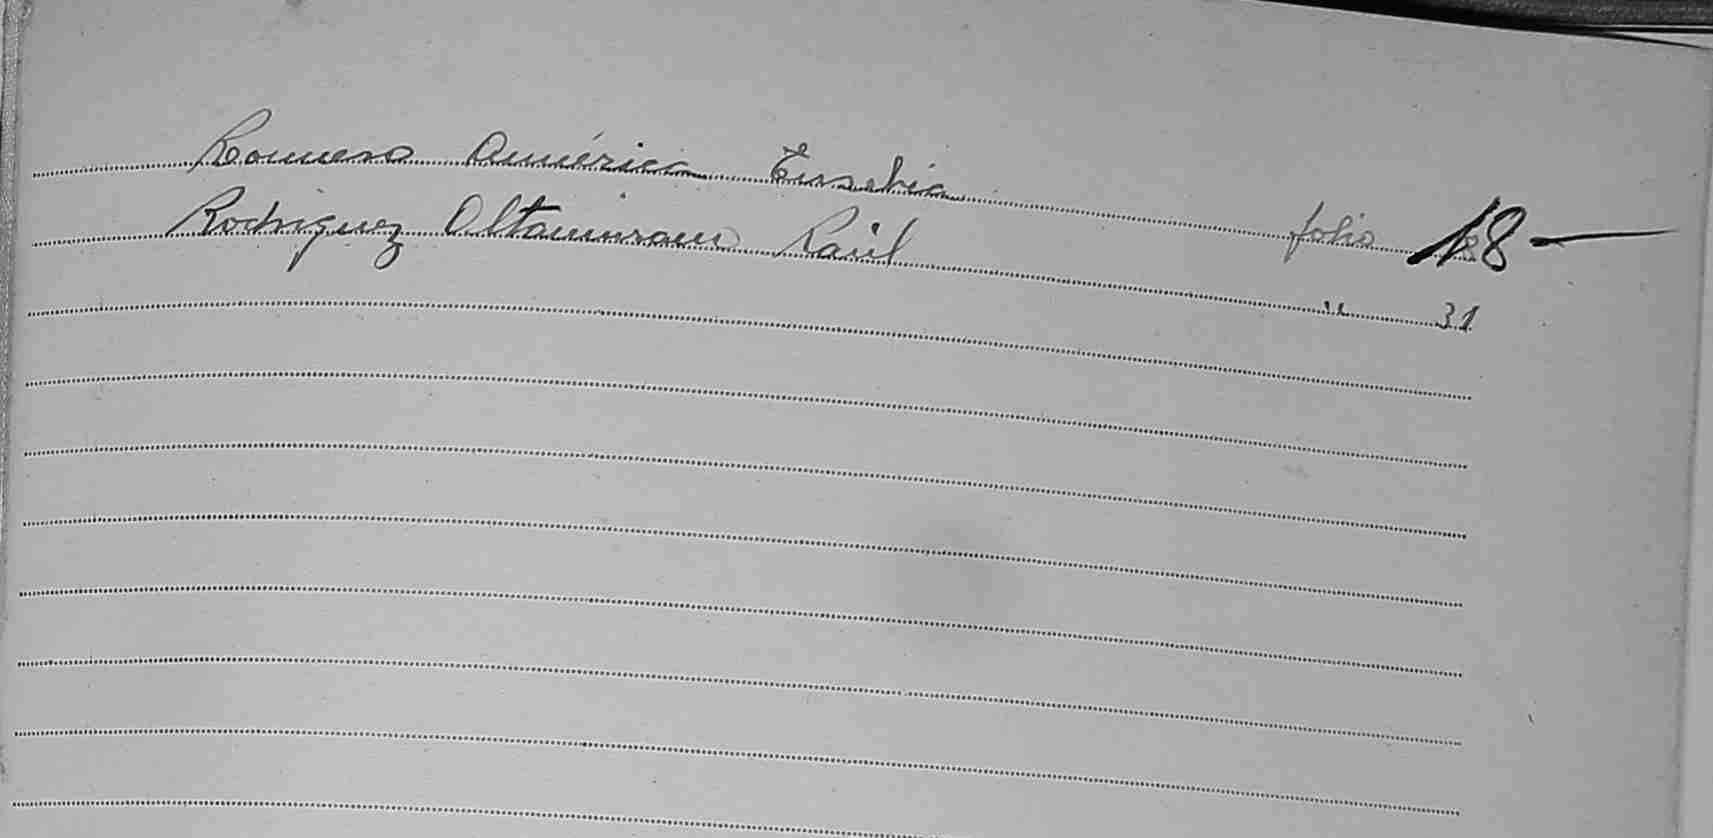 Romero América Eusebia folio 18 —
Rodriguez Altamirano Raúl " 31